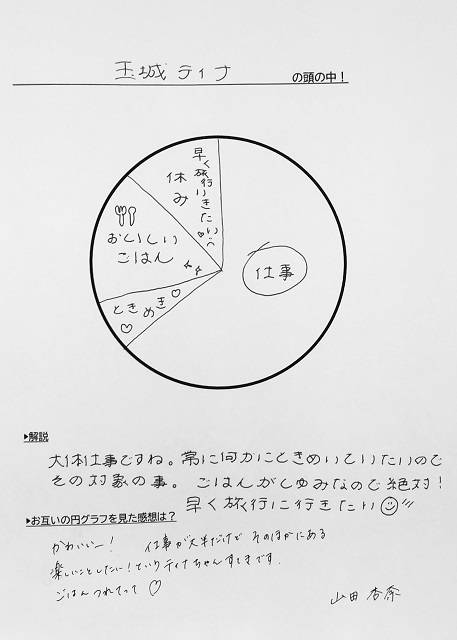 玉城ティナ の頭の中！
早く旅行いきたいっ
休み
おいしい
ごはん
ときめき
仕事
▶解説
大体仕事ですね。常に何かにときめいていたいので
その対象の事。ごはんがしゅみなので絶対！
早く旅行に行きたい
▶お互いの円グラフを見た感想は？
かわいいー！ 仕事が大半だけど そのほかにある
楽しいことしたい！というティナちゃんすてきです.
ごはんつれてって♡
山田杏奈